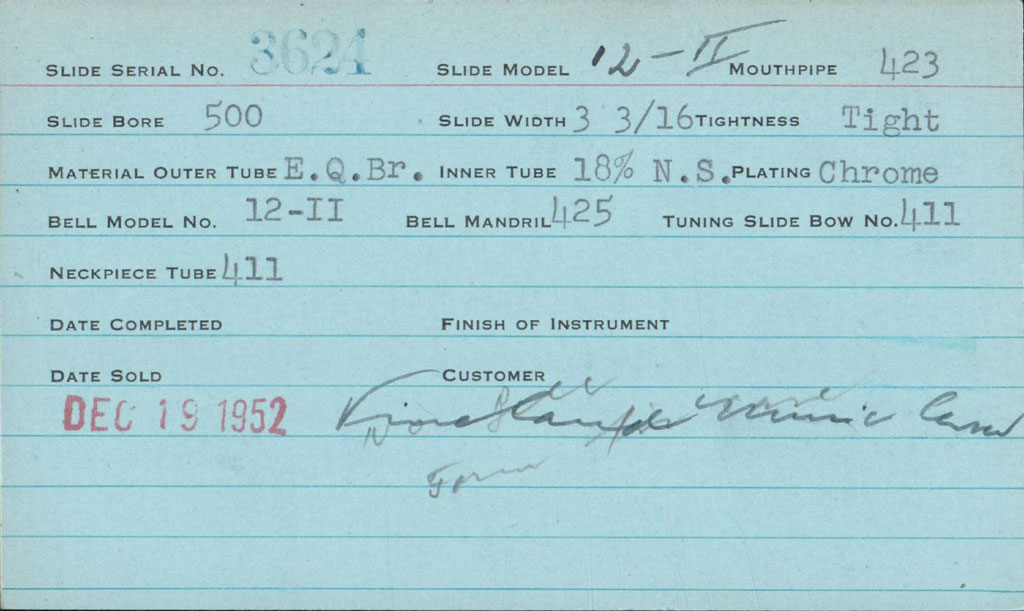 SLIDE SERIAL NO. 3624 SLIDE MODEL 12-II MOUTHPIPE 423
SLIDE BORE 500 SLIDE WIDTH 3 3/16 TIGHTNESS Tight
MATERIAL OUTER TUBE E.Q.Br. INNER TUBE 18% N.S. PLATING Chrome
BELL MODEL NO. 12-II BELL MANDRIL 425 TUNING SLIDE BOW NO. 411
NECKPIECE TUBE 411
DATE COMPLETED FINISH OF INSTRUMENT
DATE SOLD CUSTOMER
DEC 19 1952 Music